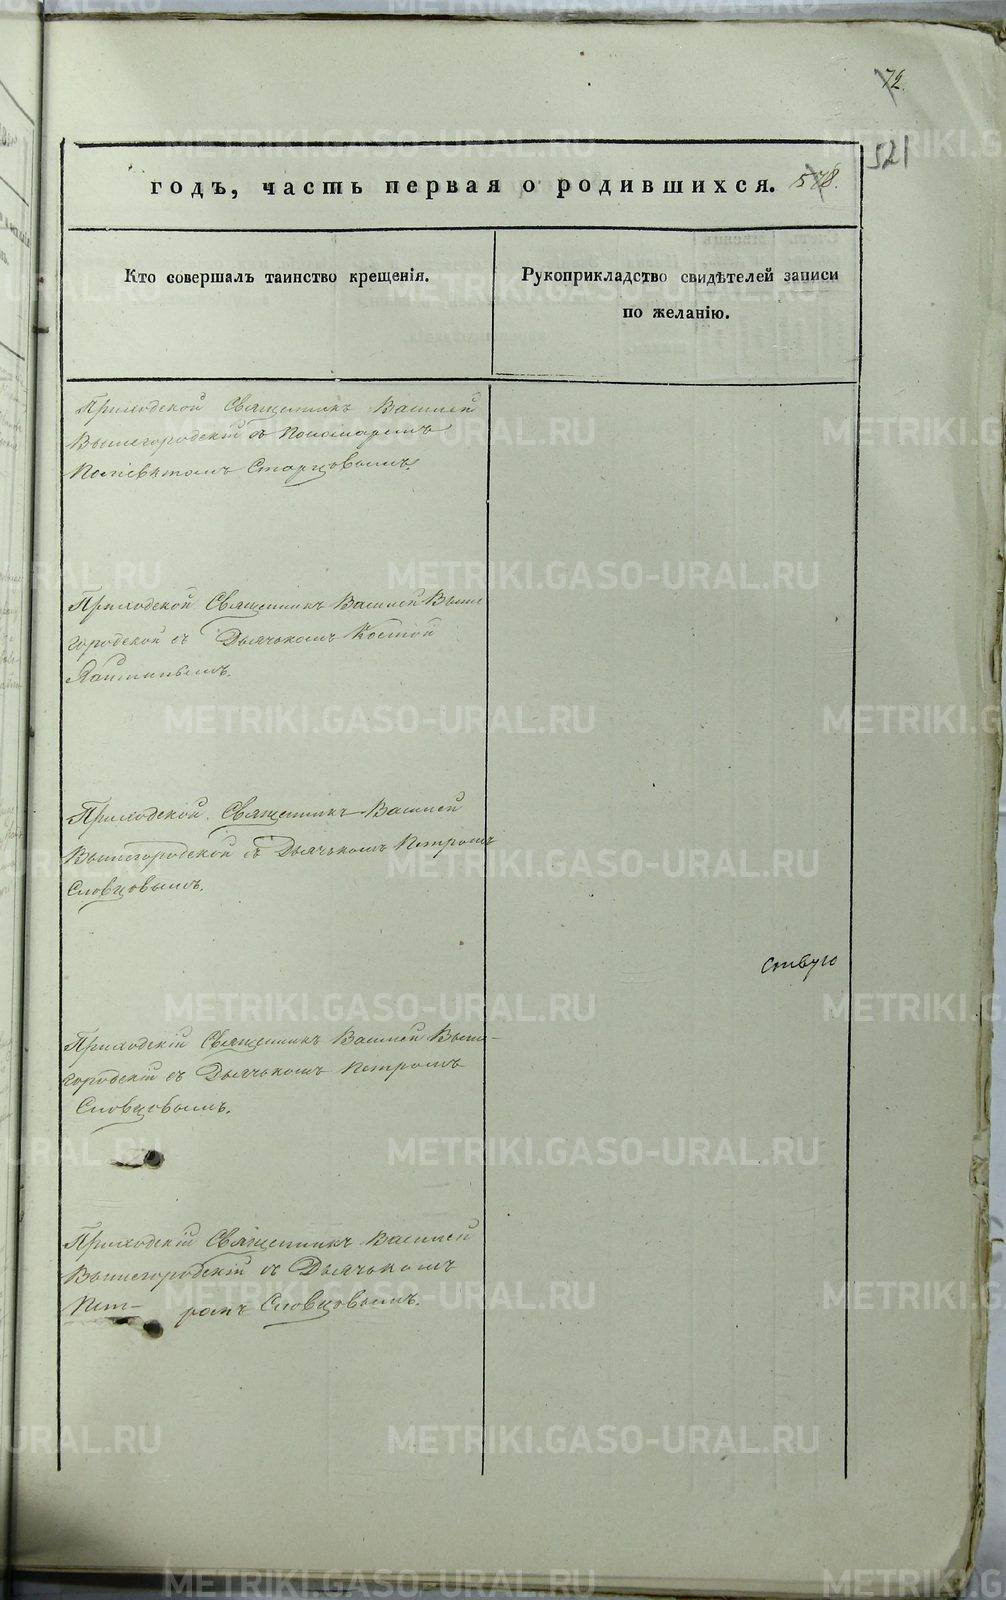 72.
521
годъ, часть первая о родившихся. 578.
Кто совершалъ таинство крещенія.
Рукоприкладство свидѣтелей записи
по желанію.
Приходской Священникъ Василей
Вышегородскій съ Пономаремъ
Старцовымъ.
Приходской Священникъ Василей Выше
городской съ Дьячькомъ
Приходской Священникъ Василей
Вышегородской съ Дьячькомъ Петромъ
Словцовымъ.
ствую
Приходскій Священникъ Василей Выше-
городскій съ Дьячькомъ Петромъ
Словцовымъ.
Приходскій Священникъ Василей
Вышегородскій съ Дьячькомъ
Пет- ромъ Словцовымъ.
METRIKI.GASO-URAL.RU